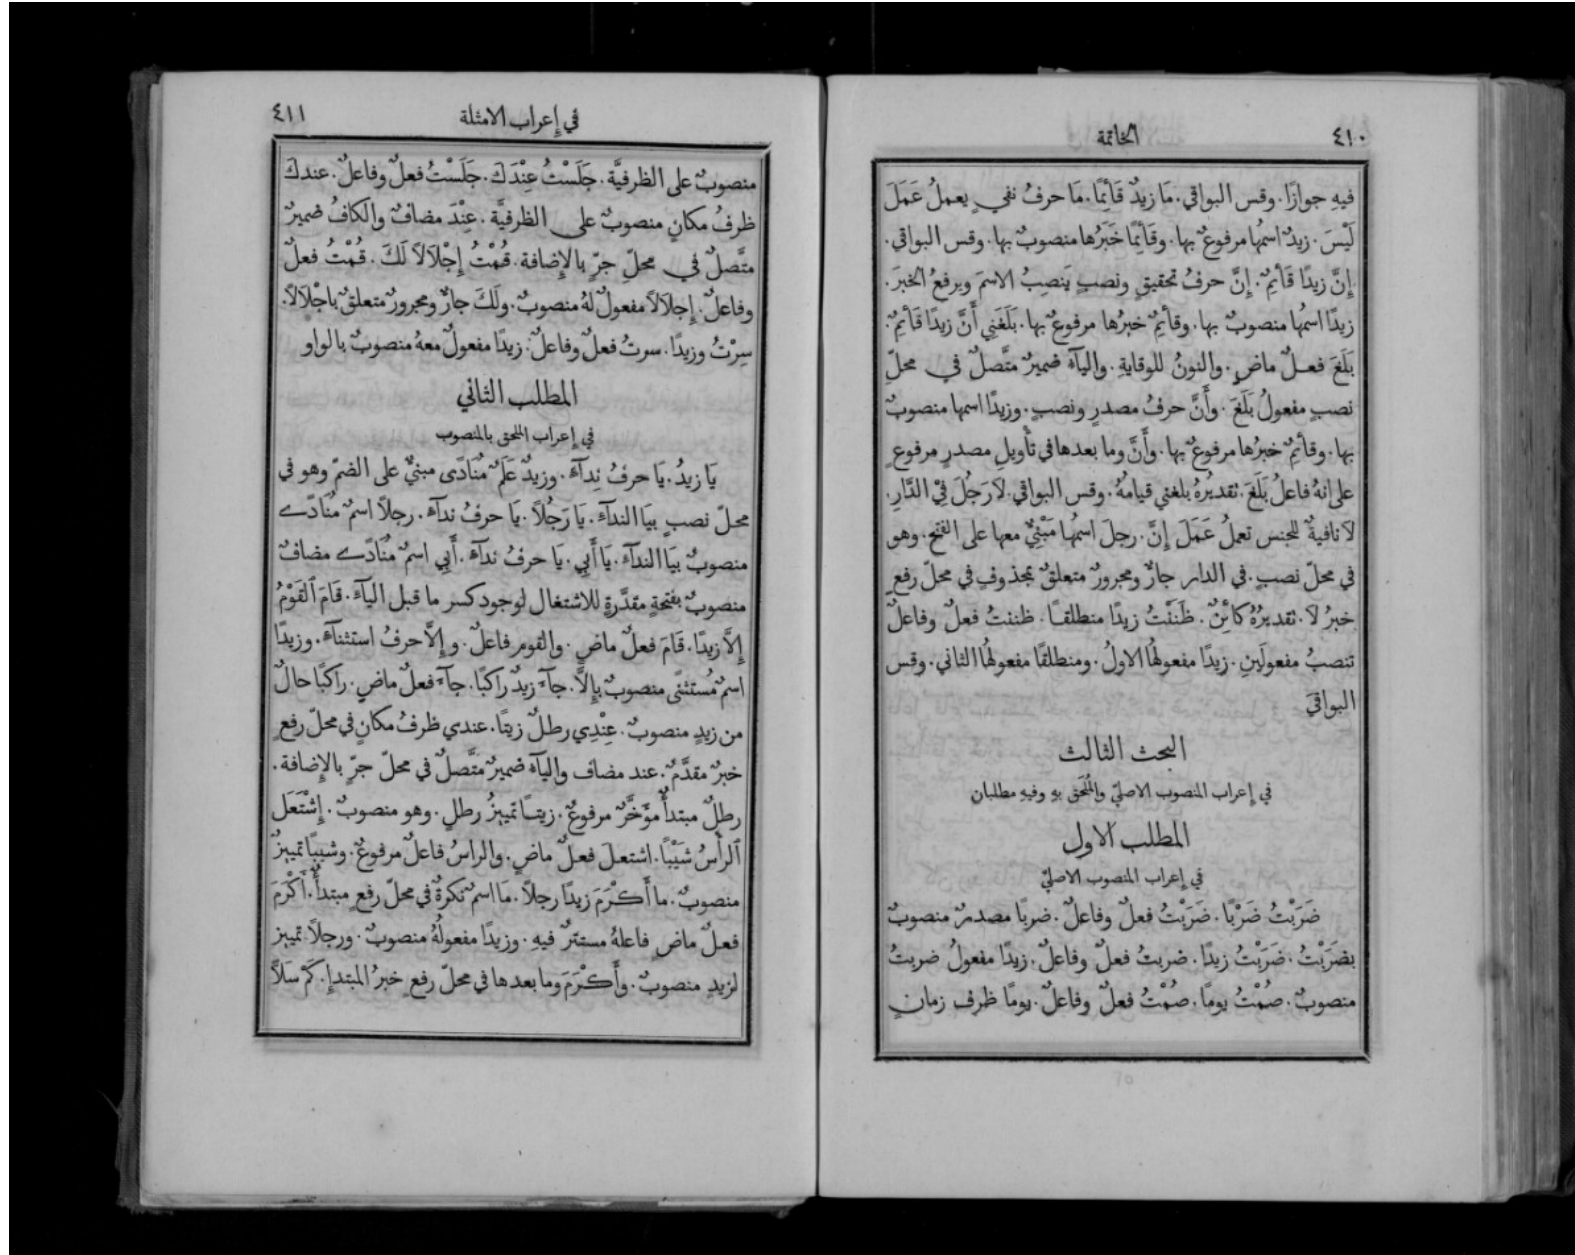 ٤١٠
الخاتمة
فيهِ جوازًا. وقس البواقي. مَا زيدٌ قَائِمًا. مَا حرفُ نفيٍ يعملُ عَمَلَ
لَيْسَ. زيدٌ اسمُها مرفوعٌ بها. وقَائِمًا خَبَرُها منصوبٌ بها. وقس البواقي.
إِنَّ زيدًا قَائِمٌ. إِنَّ حرفُ تحقيقٍ ونصبٍ يَنصِبُ الاسمَ ويرفعُ الخبرَ.
زيدًا اسمُها منصوبٌ بها. وقائِمٌ خبرُها مرفوعٌ بها. بَلَغَنِي أَنَّ زيدًا قَائِمٌ.
بَلَغَ فعلٌ ماضٍ. والنونُ للوقايةِ. واليآءُ ضميرٌ متَّصلٌ في محلِّ
نصبٍ مفعولُ بَلَغَ. وأَنَّ حرفُ مصدرٍ ونصبٍ. وزيدًا اسمها منصوبٌ
بها. وقائِمٌ خبرُها مرفوعٌ بها. وأَنَّ وما بعدها في تأْويلِ مصدرٍ مرفوعٍ
على انهُ فاعلُ بَلَغَ. تقديرُهُ بلغني قيامهُ. وقس البواقي. لاَ رَجُلَ فِيْ الدَّارِ.
لاَ نافيةٌ للجنس تعملُ عَمَلَ إِنَّ. رجلَ اسمُها مَبْنِيٌّ معها على الفتح. وهو
في محلّ نصبٍ. في الدار جارٌّ ومجرورٌ متعلقٌ بمحذوفٍ في محلّ رفعٍ
خبرُ لاَ. تقديرُهُ كائِنٌ. ظَنَنْتُ زيدًا منطلقًا. ظننتُ فعلٌ وفاعلٌ
تنصبُ مفعولَينِ. زيدًا مفعولُها الاولُ. ومنطلقًا مفعولُها الثاني. وقس
البواقيَ
البحث الثالث
في إِعراب المنصوب الاصليّ والمُلحَق بهِ وفيهِ مطلبان
المطلب الاول
في إِعراب المنصوب الاصليّ
ضَرَبْتُ ضَرْبًا. ضَرَبْتُ فعلٌ وفاعلٌ. ضربًا مصدرٌ منصوبٌ
بضَرَبْتُ. ضَرَبْتُ زيدًا. ضربتُ فعلٌ وفاعلٌ. زيدًا مفعولُ ضربتُ
منصوبٌ. صُمْتُ يومًا. صُمْتُ فعلٌ وفاعلٌ. يومًا ظرف زمانٍ
٤١١
في إِعراب الامثلة
منصوبٌ على الظرفيَّة. جَلَسْتُ عِنْدَكَ. جَلَسْتُ فعلٌ وفاعلٌ. عندكَ
ظرفُ مكانٍ منصوبٌ على الظرفيَّة. عِنْدَ مضافٌ والكافُ ضميرٌ
متَّصلٌ في محلّ جرٍّ بالإِضافة. قُمْتُ إِجْلاَلاً لَكَ. قُمْتُ فعلٌ
وفاعلٌ. إِجلاَلاً مفعولٌ لهُ منصوبٌ. ولَكَ جارٌّ ومجرورٌ متعلقٌ باجْلاَلاً.
سِرْتُ وزيدًا. سرتُ فعلٌ وفاعلٌ. زيدًا مفعولٌ معهُ منصوبٌ بالواو
المطلب الثاني
في إِعراب الملحق بالمنصوب
يَا زيدُ. يَا حرفُ نِدآءٍ. وزيدٌ عَلَمٌ مُنَادًى مبنيٌّ على الضمّ وهو في
محلّ نصبٍ بيَا الندآءِ. يَا رَجُلاً. يَا حرفُ ندآءٍ. رجلاً اسمٌ مُنَادًے
منصوبٌ بيَا الندآءِ. يَا أَبِي. يَا حرفُ ندآءٍ. أَبِي اسمٌ مُنَادًے مضافٌ
منصوبٌ بفتحةٍ مقدَّرةٍ للاشتغال لوجود كسر ما قبل اليآءِ. قَامَ ٱلقَوْمُ
إِلاَّ زيدًا. قَامَ فعلٌ ماضٍ. والقوم فاعلٌ. وإِلاَّ حرفُ استثنآءٍ. وزيدًا
اسمٌ مُستثنًى منصوبٌ بإِلاَّ. جآءَ زيدٌ راكبًا. جآءَ فعلٌ ماضٍ. راكبًا حالٌ
من زيدٍ منصوبٌ. عِنْدِي رطلٌ زيتًا. عندي ظرفُ مكانٍ في محلّ رفعٍ
خبرٌ مقدَّمٌ. عند مضاف واليآءُ ضميرٌ متَّصلٌ في محلّ جرٍّ بالإِضافة.
رطلٌ مبتدأٌ مؤَخَّرٌ مرفوعٌ. زيتًا تمييزُ رطلٍ. وهو منصوبٌ. إِشْتَعَل
ٱلرَأْسُ شَيْبًا. اشتعلَ فعلٌ ماضٍ. والراسُ فاعلٌ مرفوعٌ. وشيبًا تمييزٌ
منصوبٌ. ما أَكْرَمَ زيدًا رجلاً. مَا اسمٌ نكرةٌ في محلّ رفعٍ مبتدأٌ. أَكْرَمَ
فعلٌ ماضٍ فاعلهُ مستترٌ فيهِ. وزيدًا مفعولُهُ منصوبٌ. ورجلاً تمييز
لزيدٍ منصوبٌ. وأَكْرَمَ وما بعدها في محلّ رفعٍ خبرُ المبتدإِ. كَمْ سَلاًّ